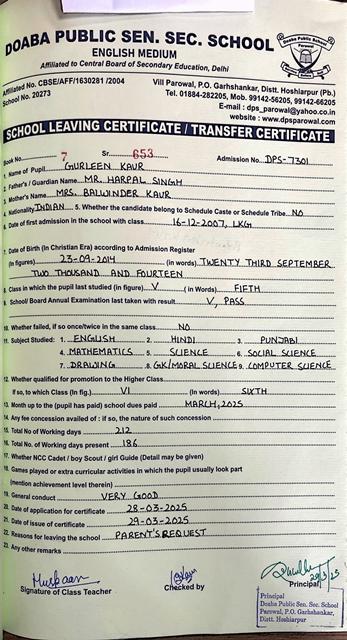 DOABA PUBLIC SEN. SEC. SCHOOL
ENGLISH MEDIUM
Affiliated to Central Board of Secondary Education, Delhi
Affiliated No. CBSE/AFF/1630281 /2004
School No. 20273
Vill Parowal, P.O. Garhshankar, Distt. Hoshiarpur (Pb.)
Tel. 01884-282205, Mob. 99142-56205, 99142-66205
E-mail : dps_parowal@yahoo.co.in
website : www.dpsparowal.com
SCHOOL LEAVING CERTIFICATE / TRANSFER CERTIFICATE
Book No. 7 Sr. 653 Admission No. DPS-7301
1. Name of Pupil GURLEEN KAUR
2. Father's / Guardian Name MR. HARPAL SINGH
3. Mother's Name MRS. BALWINDER KAUR
4. Nationality INDIAN 5. Whether the candidate belong to Schedule Caste or Schedule Tribe NO
6. Date of first admission in the school with class 16-12-2007, LKG
7. Date of Birth (In Christian Era) according to Admission Register
(In figures) 23-09-2014 (in words) TWENTY THIRD SEPTEMBER
TWO THOUSAND AND FOURTEEN
8. Class in which the pupil studied (in figure) V ( in Words) FIFTH
9. School Board Annual Examination last taken with result V, PASS
10. Whether failed, if so once/twice in the same class NO
11. Subject Studied : 1. ENGLISH 2. HINDI 3. PUNJABI
4. MATHEMATICS 5. SCIENCE 6. SOCIAL SCIENCE
7. DRAWING 8. GK/MORAL SCIENCE 9. COMPUTER SCIENCE
12. Whether qualified for promotion to the Higher Class
If so, to which Class (In fig.) VI (In words) SIXTH
13. Month up to the (pupil has paid) school dues paid MARCH, 2025
14. Any fee concession availed of : if so, the nature of such concession
15. Total No. of Working days 212
16. Total No. of Working days present 186
17. Whether NCC Cadet / boy Scout / girl Guide (Detail may be given)
18. Games played or extra curricular activities in which the pupil usually look part
(mention achievement level therein)
19. General conduct VERY GOOD
20. Date of application for certificate 28-03-2025
21. Date of issue of certificate 29-03-2025
22. Reasons for leaving the school PARENT'S REQUEST
23. Any other remarks
Muskaan
29/3/25
Signature of Class Teacher Checked by Principal
Principal
Doaba Public Sen. Sec. School
Parowal, P.O. Garhshankar,
Distt. Hoshiarpur